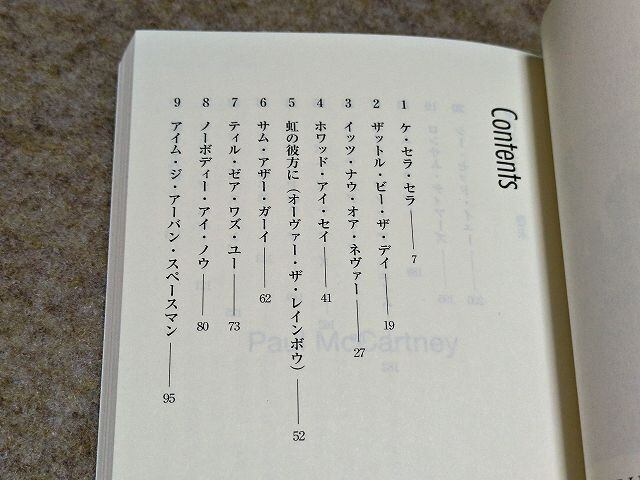 Contents
1 ケ・セラ・セラ――7
2 ザットル・ビー・ザ・デイ――19
3 イッツ・ナウ・オア・ネヴァー――27
4 ホワッド・アイ・セイ――41
5 虹の彼方に(オーヴァー・ザ・レインボウ)――52
6 サム・アザー・ガーイ――62
7 ティル・ゼア・ワズ・ユー――73
8 ノーボディー・アイ・ノウ――80
9 アイム・ジ・アーバン・スペースマン――95
Paul McCartney